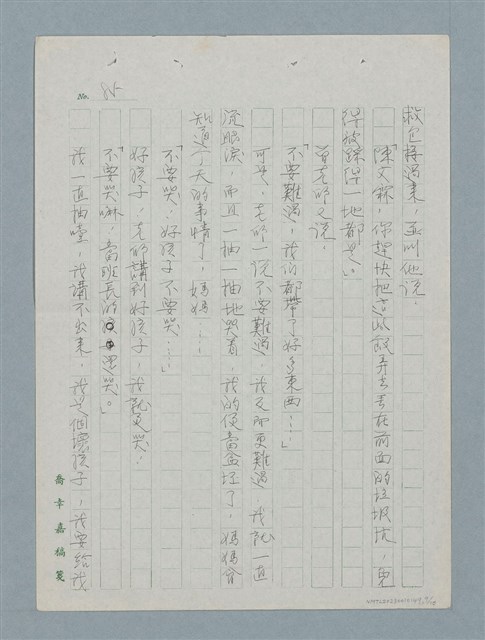 No. 85
救包移過來，並叫他說：
「陳文霖，你趕快把這些飯弄去丟在前面的垃圾坑，免
得被踩得一地都是。」
曾老師又說：
「不要難過，我們都帶了好多東西……」
可是，老師一說不要難過，我反而更難過，我就一直
流眼淚，而且一抽一抽地哭着，我的便當盒坯了，媽媽會
知道今天的事情了，媽媽……
「不要哭，好孩子不要哭……」
好孩子，老師講到好孩子，我就更哭！
「不要哭嘛，當班長的還哭。」
我一直抽噎，我講不出來，我是個壞孩子，我要給我
喬幸嘉稿箋